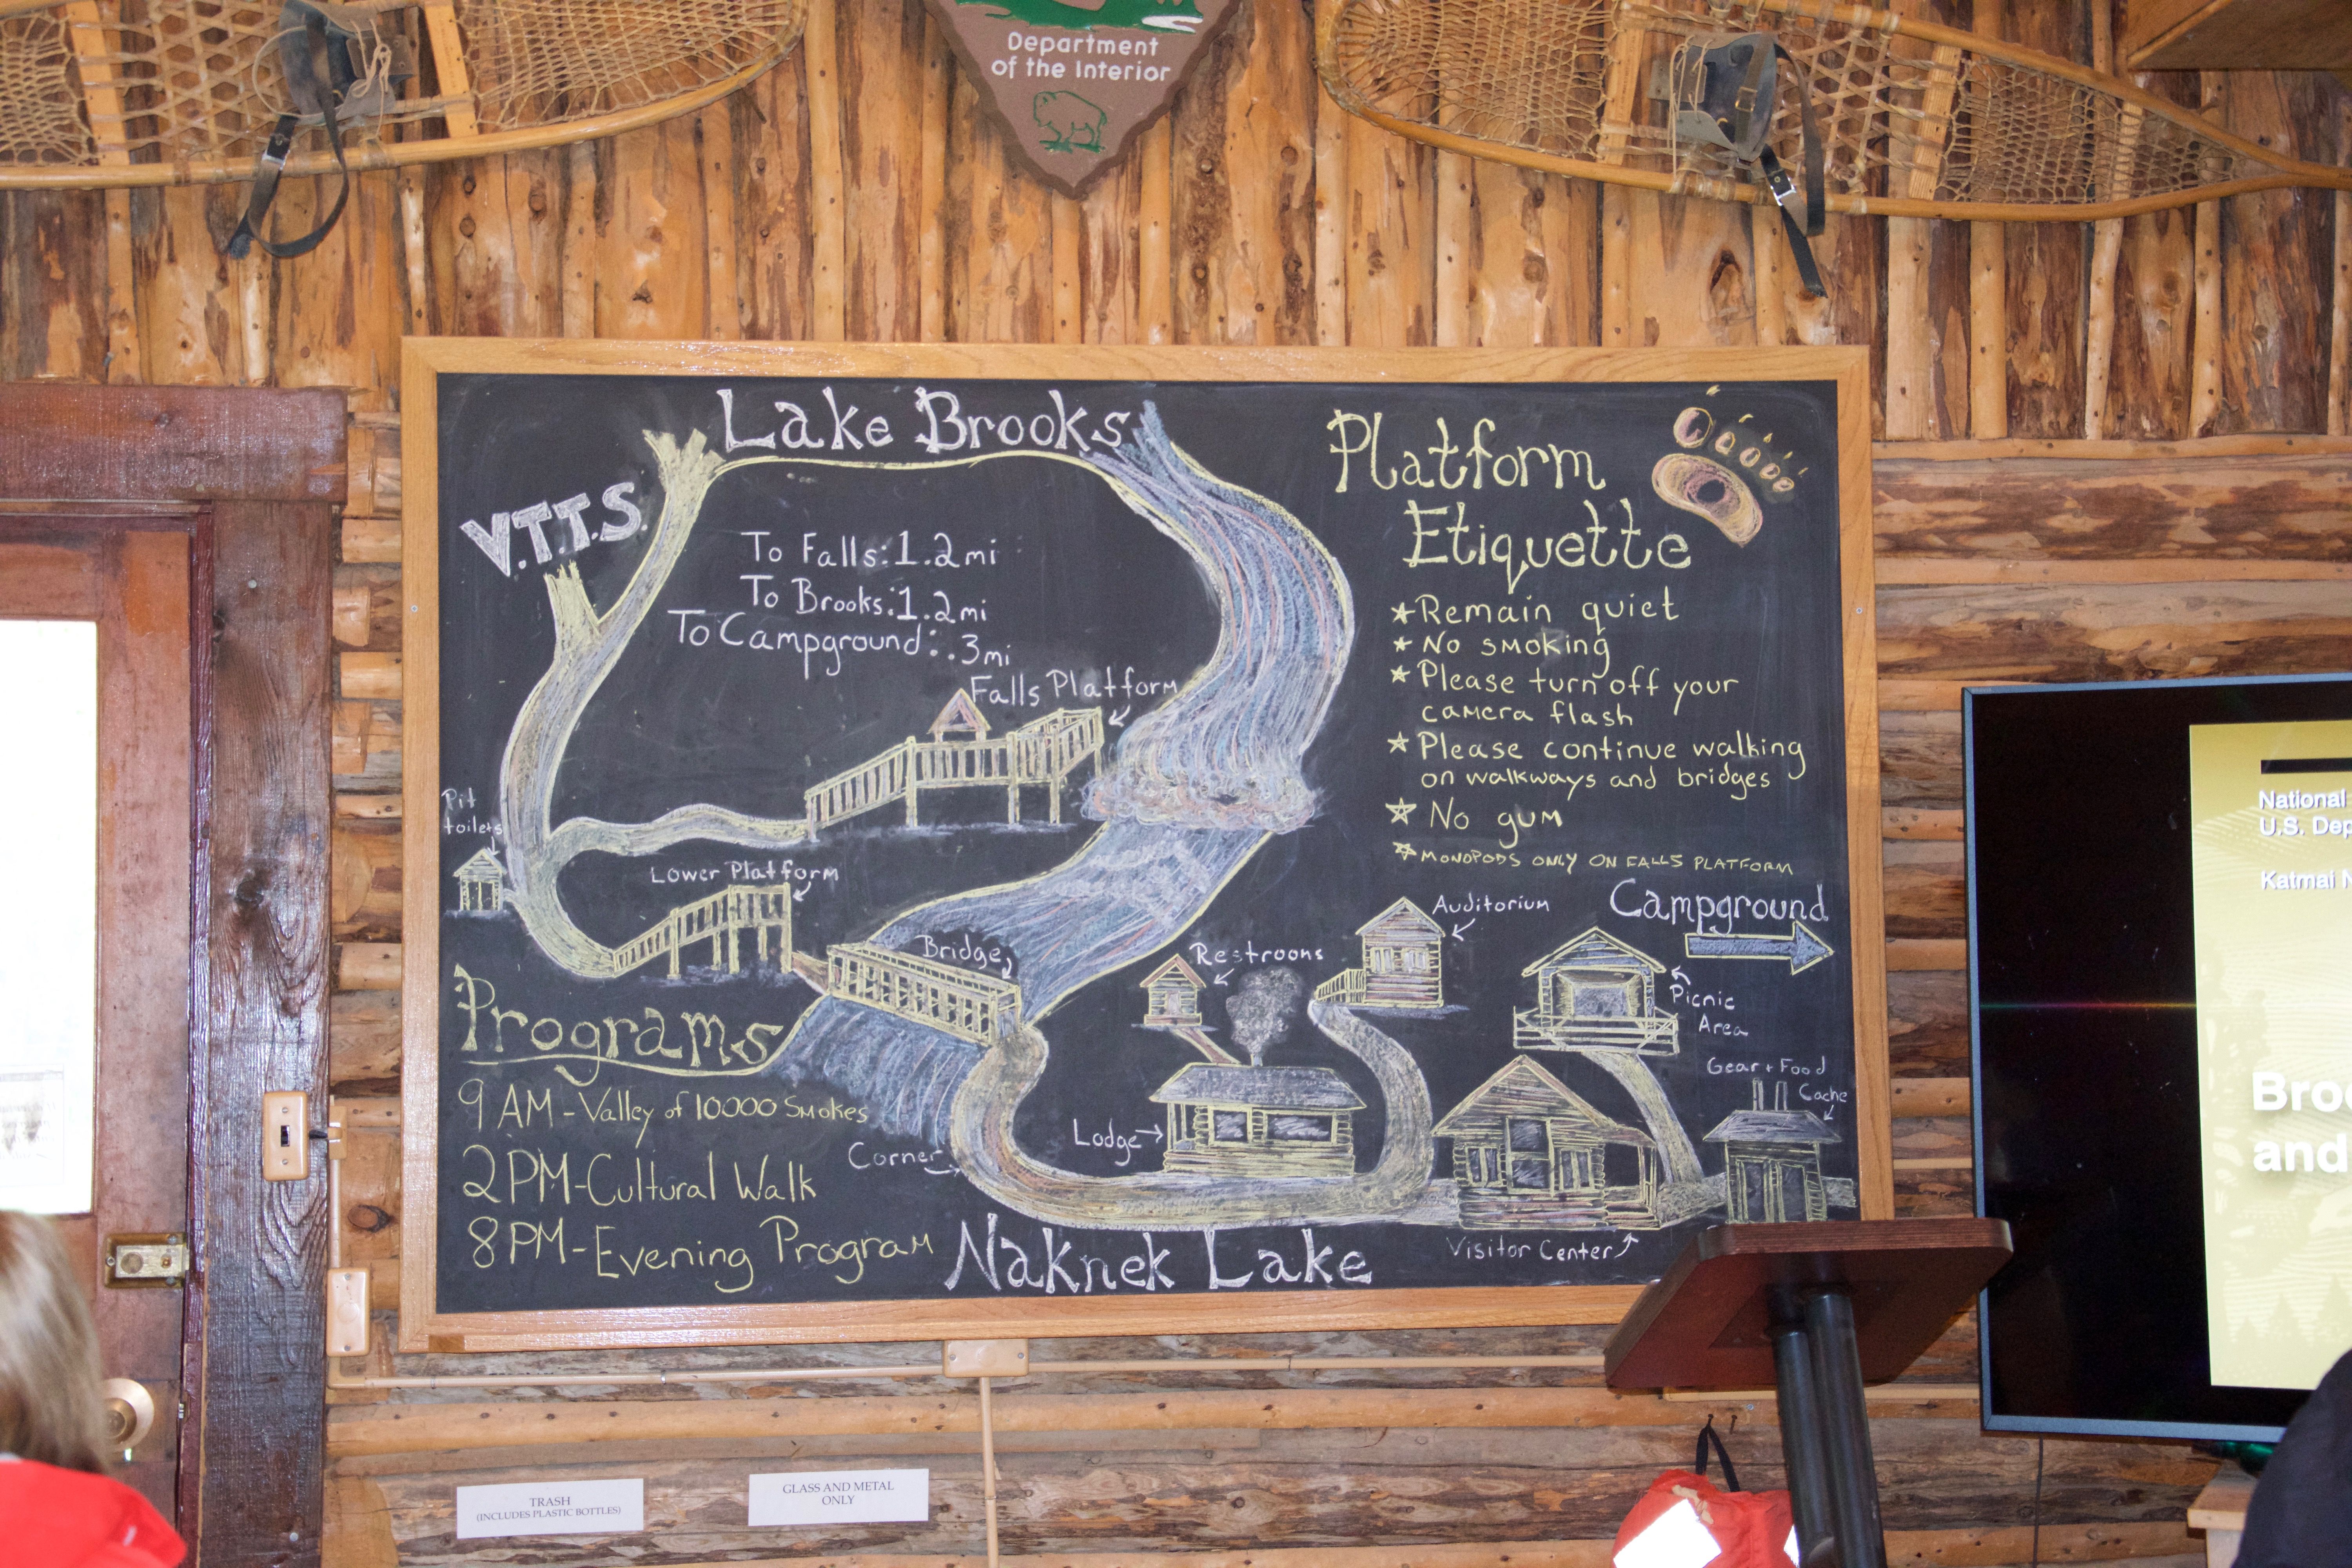 Department
of the Interior
Lake Brooks
V.T.T.S.
To Falls: 1.2mi
To Brooks: 1.2mi
To Campground: .3mi
Falls Platform
Pit
toilets
Lower Platform
Bridge
Programs
9 AM - Valley of 10000 Smokes
2 PM - Cultural Walk
8 PM - Evening Program
Corner
Naknek Lake
Platform
Etiquette
Remain quiet
No smoking
Please turn off your
camera flash
Please continue walking
on walkways and bridges
No gum
MONOPODS ONLY ON FALLS PLATFORM
Campground
Auditorium
Restrooms
Picnic
Area
Gear + Food
Cache
Lodge
Visitor Center
National
U.S. Dep
Katmai N
Broo
and
TRASH
(INCLUDES PLASTIC BOTTLES)
GLASS AND METAL
ONLY